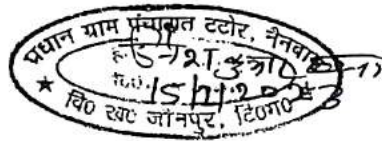 प्रधान ग्राम पंचायत टटोर, नैनबाग
ह.
दि०. 15/12/2023
★ वि० ख० जौनपुर, टि०ग०